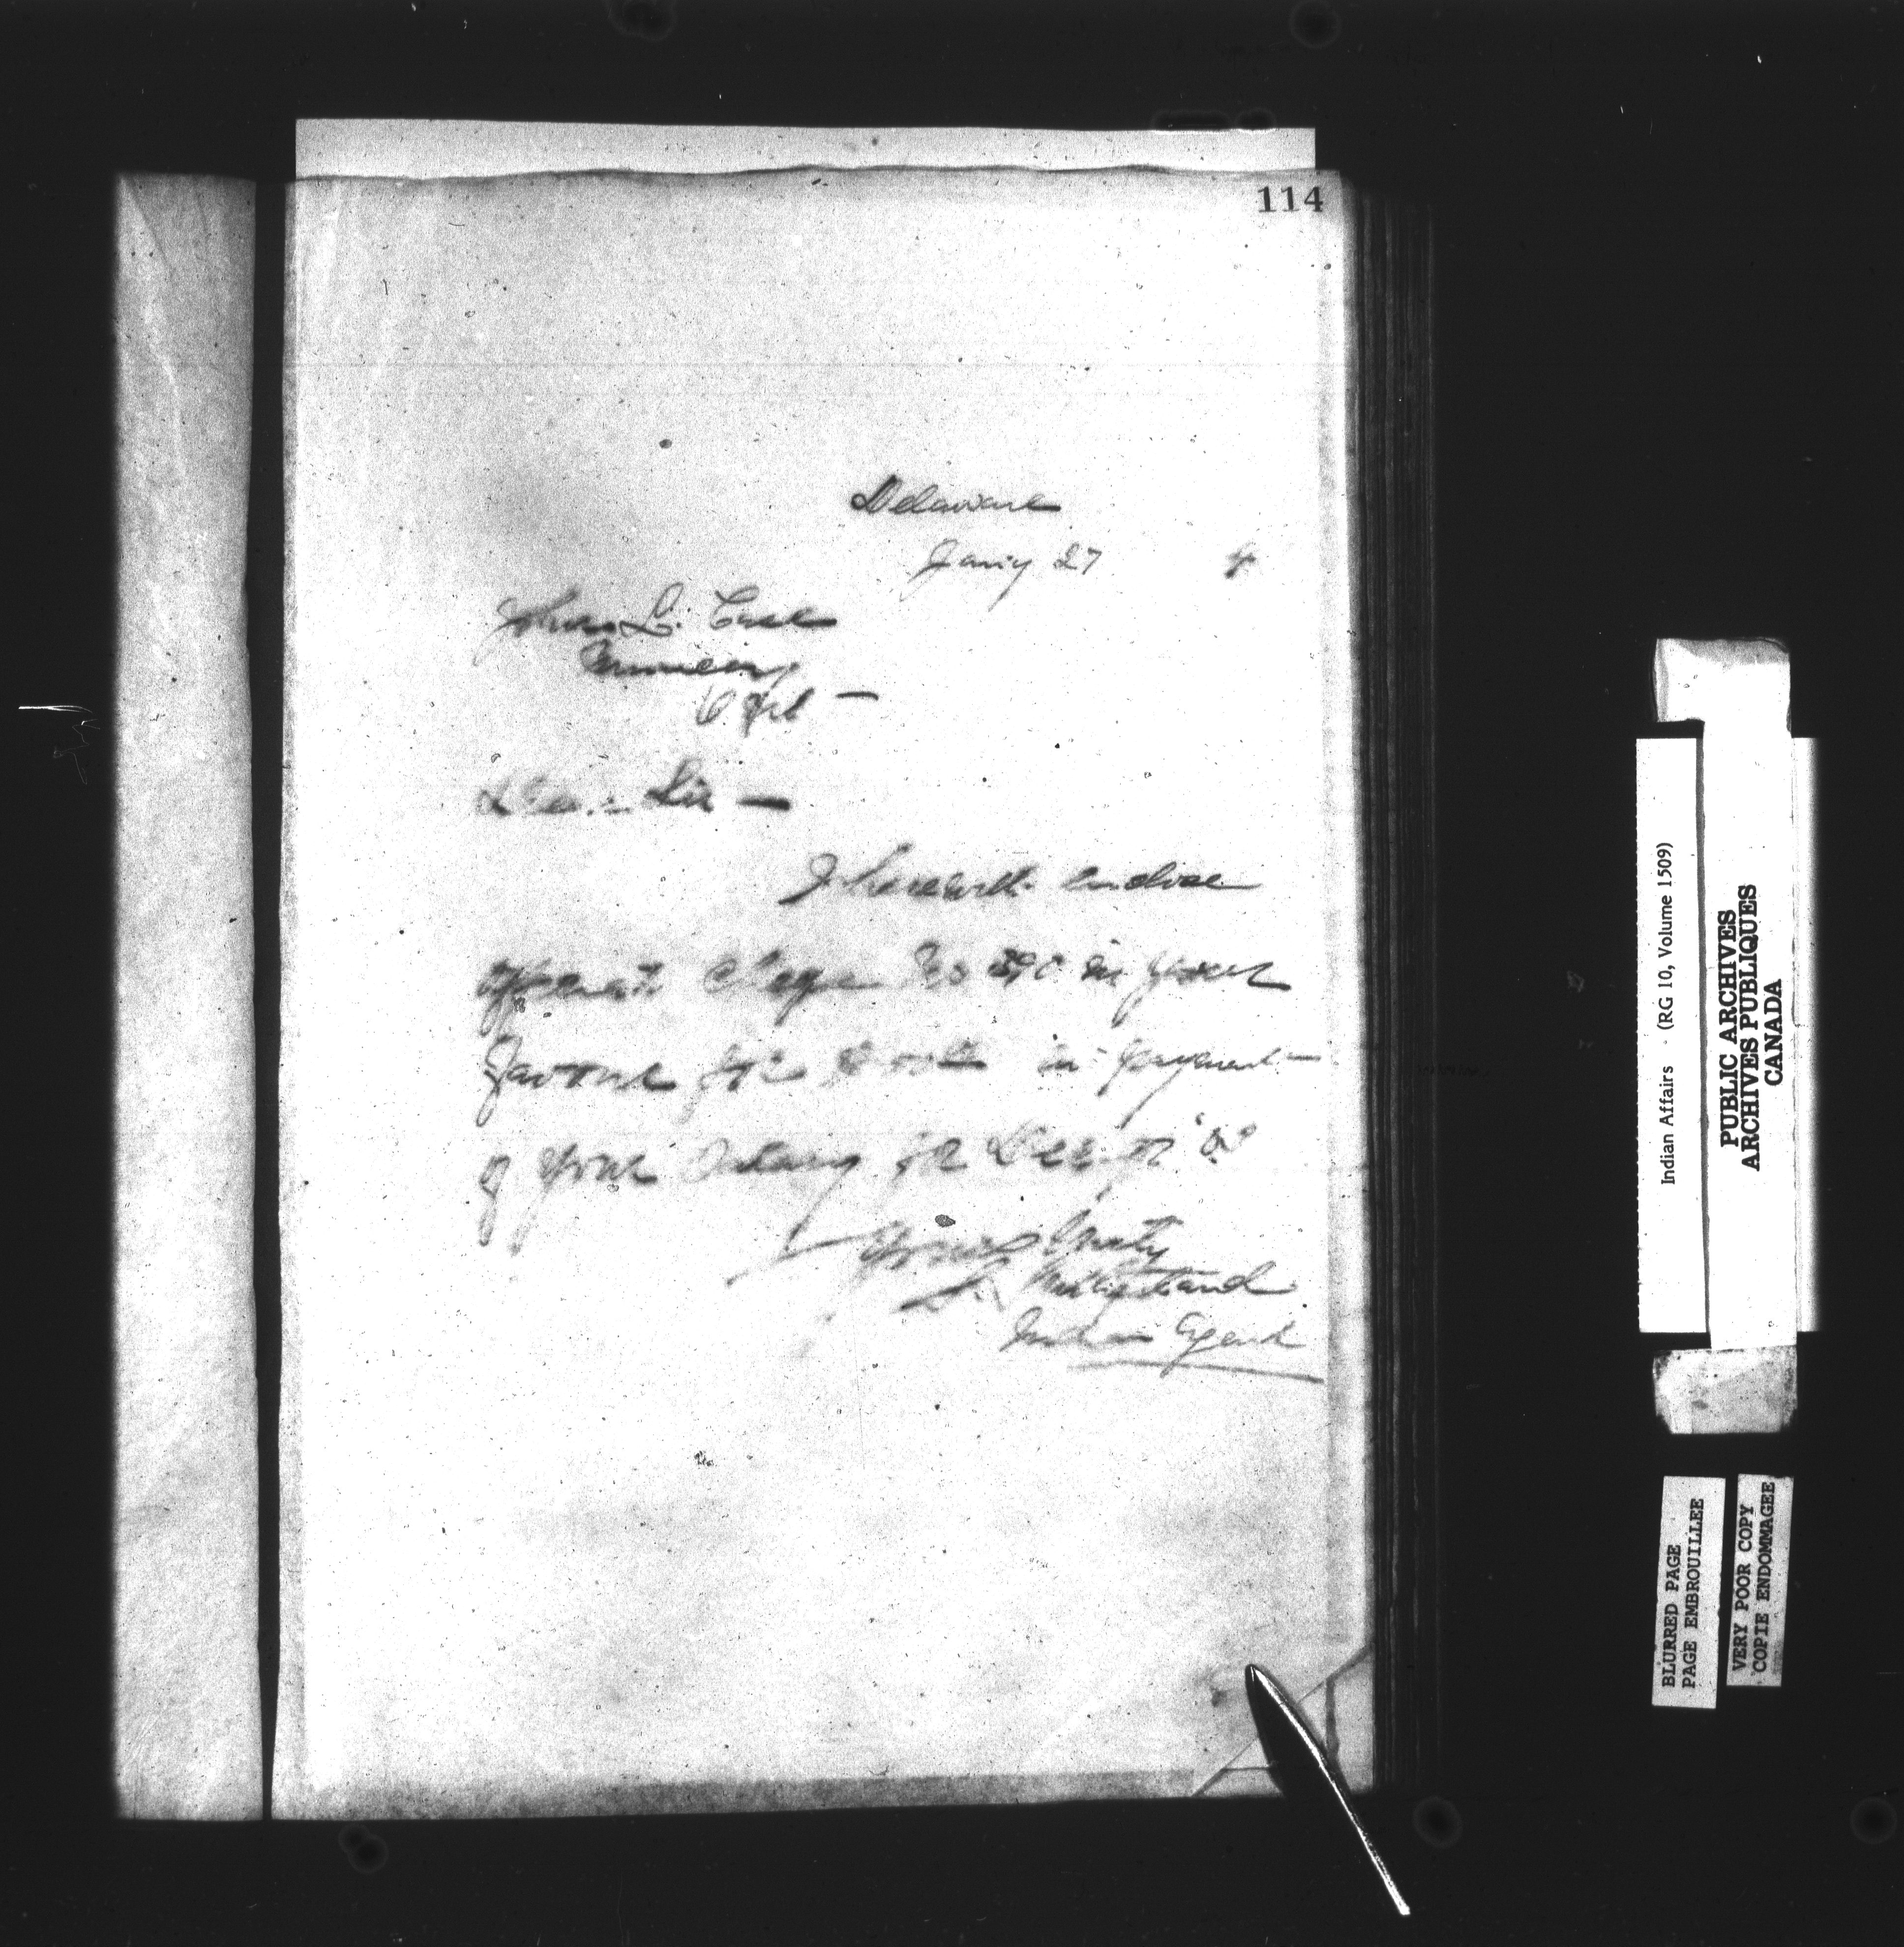 114
Delaware
Jany 27 4
John L. Case
Muncey
Dear Sir —
I herewith enclose
Cheque No 390 in your
favour for in payment
of your Salary for Decr
Yours truly
S.
Indian Agent
Indian Affairs - (RG 10, Volume 1509)
PUBLIC ARCHIVES
ARCHIVES PUBLIQUES
CANADA
BLURRED PAGE
PAGE EMBROUILLEE
VERY POOR COPY
COPIE ENDOMMAGEE